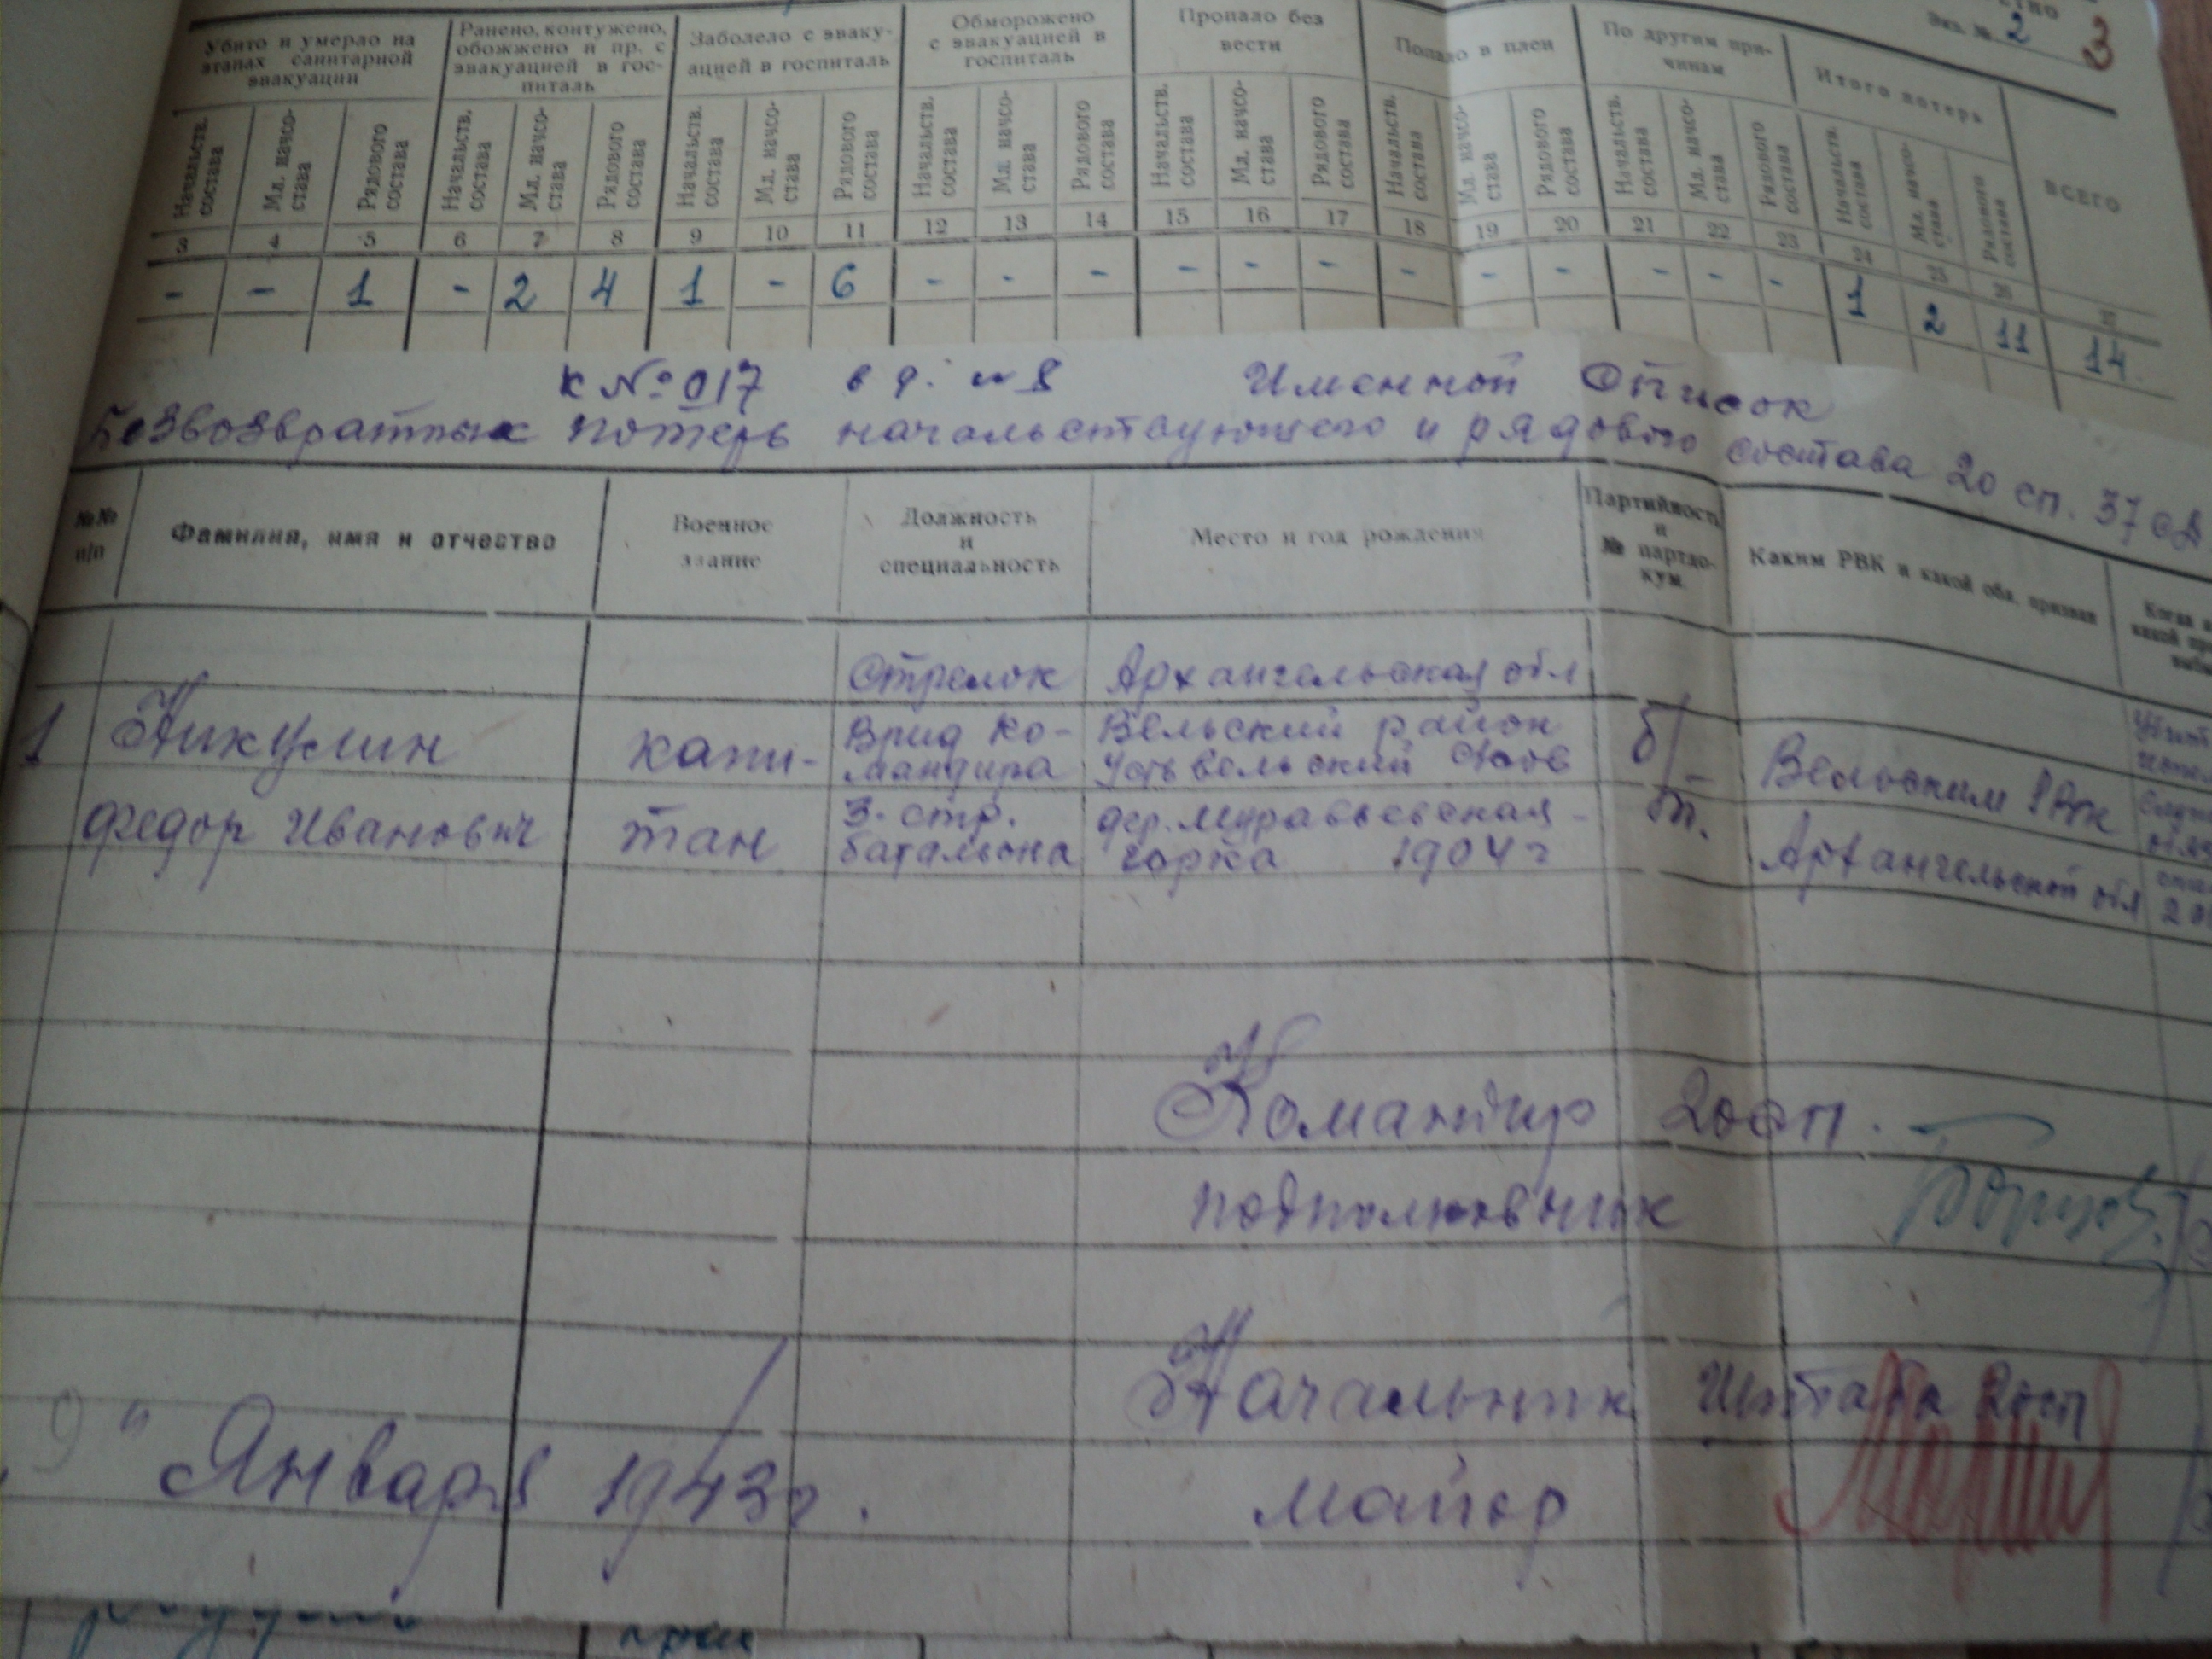 Экз. № 2 3
Убито и умерло на этапах санитарной эвакуации
Ранено, контужено, обожжено и пр. с эвакуацией в гос-питаль
Заболело с эваку-ацией в госпиталь
Обморожено с эвакуацией в госпиталь
Пропало без вести
Попало в плен
По другим при-чинам
Итого потерь
ВСЕГО
Начальств. состава
Мл. начсо-става
Рядового состава
Начальств. состава
Мл. начсо-става
Рядового состава
Начальств. состава
Мл. начсо-става
Рядового состава
Начальств. состава
Мл. начсо-става
Рядового состава
Начальств. состава
Мл. начсо-става
Рядового состава
Начальств. состава
Мл. начсо-става
Рядового состава
Начальств. состава
Мл. начсо-става
Рядового состава
Начальств. состава
Мл. начсо-става
Рядового состава
3 4 5 6 7 8 9 10 11 12 13 14 15 16 17 18 19 20 21 22 23 24 25 26 27
- - 1 - 2 4 1 - 6 - - - - - - - - - - - - 1 2 11 14
к № 017 в д. № 8 Именной Список
Безвозвратных потерь начальствующего и рядового состава 20 сп. 37 сд
№№ п/п
Фамилия, имя и отчество
Военное звание
Должность и специальность
Место и год рождения
Партийность и № партдо-кум.
Каким РВК и какой обл. призван
Стрелок Архангельская обл
1 Никулин капи- Врид Ко- Вельский район б/
мандира Усть вельский с/сов - Вельским РВК
Федор Иванович тан 3. стр. дер. Муравьевская - п.
батальона горка 1904 г Архангельской обл
Командир 20 сп.
подполковник
Начальник Штаба 20 сп
9" Января 1943 г.
майор